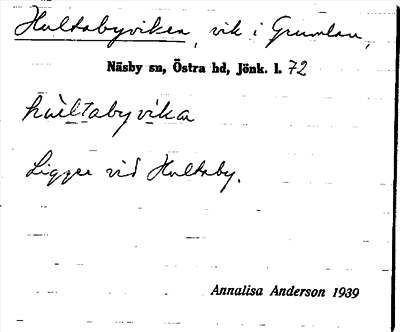 Hultabyviken, vik i Grumlan,
Näsby sn, Östra hd, Jönk. l. 72
hùltabyvika
Ligger vid Hultaby.
Annalisa Anderson 1939